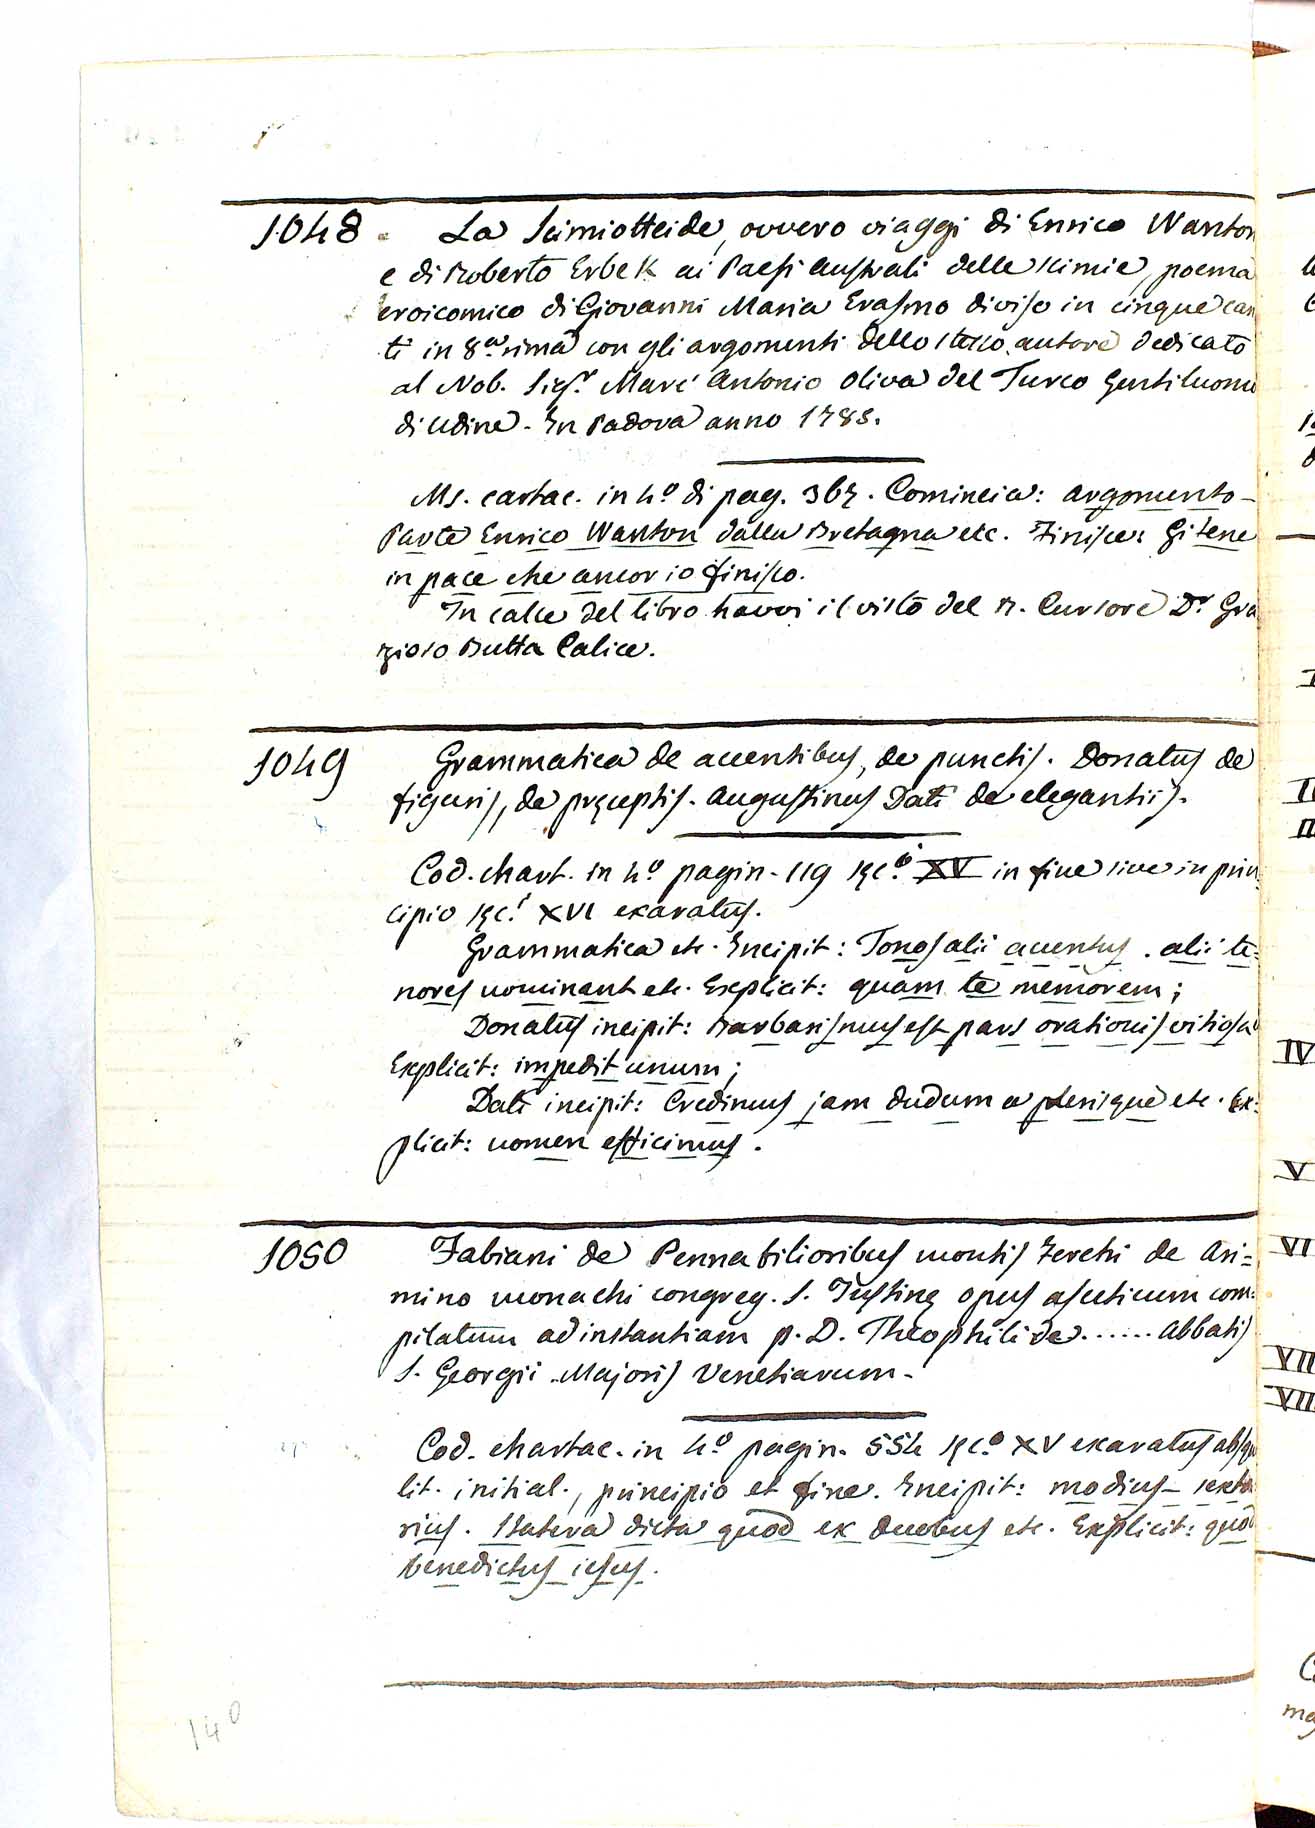 1048. La Scimiotteide, ovvero viaggi di Enrico Wanton
e di Roberto Erbek ai Paesi Australi delle scimie, poema
eroicomico di Giovanni Maria Erasmo diviso in cinque can
ti in 8.a rima con gli argomenti dello stesso autore dedicato
al Nob. Sigr. Marc' Antonio Oliva del Turco Gentiluomo
di Udine. In Padova anno 1785.
Ms. cartac. in 4.o di pag. 367. Comincia: argomento-
Parte Enrico Wanton dalla Bretagna etc. Finisce: Gitene
in pace che ancor io finisco.
In calce del libro havvi il visto del R. Cursore Dr. Gra
zioso Butta Calice.
1049 Grammatica de accentibus, de punctis. Donatus de
figuris, de pręceptis. Augustinus Dati de elegantiis.
Cod. chart. in 4.o pagin. 119 sęc.i XV in fine sive in prin
cipio sęc.i XVI exaratus.
Grammatica etc. Incipit: Tonos alii accentus. alii te=
nores nominant etc. Explicit: quam te memorem;
Donatus incipit: Barbarismus est pars orationis vitiosa
Explicit: impedit unum;
Dati incipit: Credimus jam dudum a plerisque etc. Ex:
plicit: nomen efficimus.
1050 Fabiani de Pennabilioribus montis Feretri de Ari=
mino monachi congreg. S. Justinę opus asceticum com:
pilatum ad instantiam p. D. Theophili de ...... Abbatis
S. Georgii Majoris Venetiarum.
Cod. chartac. in 4.o pagin. 554 sęc.o XV exaratus absq
lit. initial., principio et fine. Incipit: modius- sexta
rius. Statera dicta quod ex duobus etc. Explicit: quod
benedictus iesus.
140